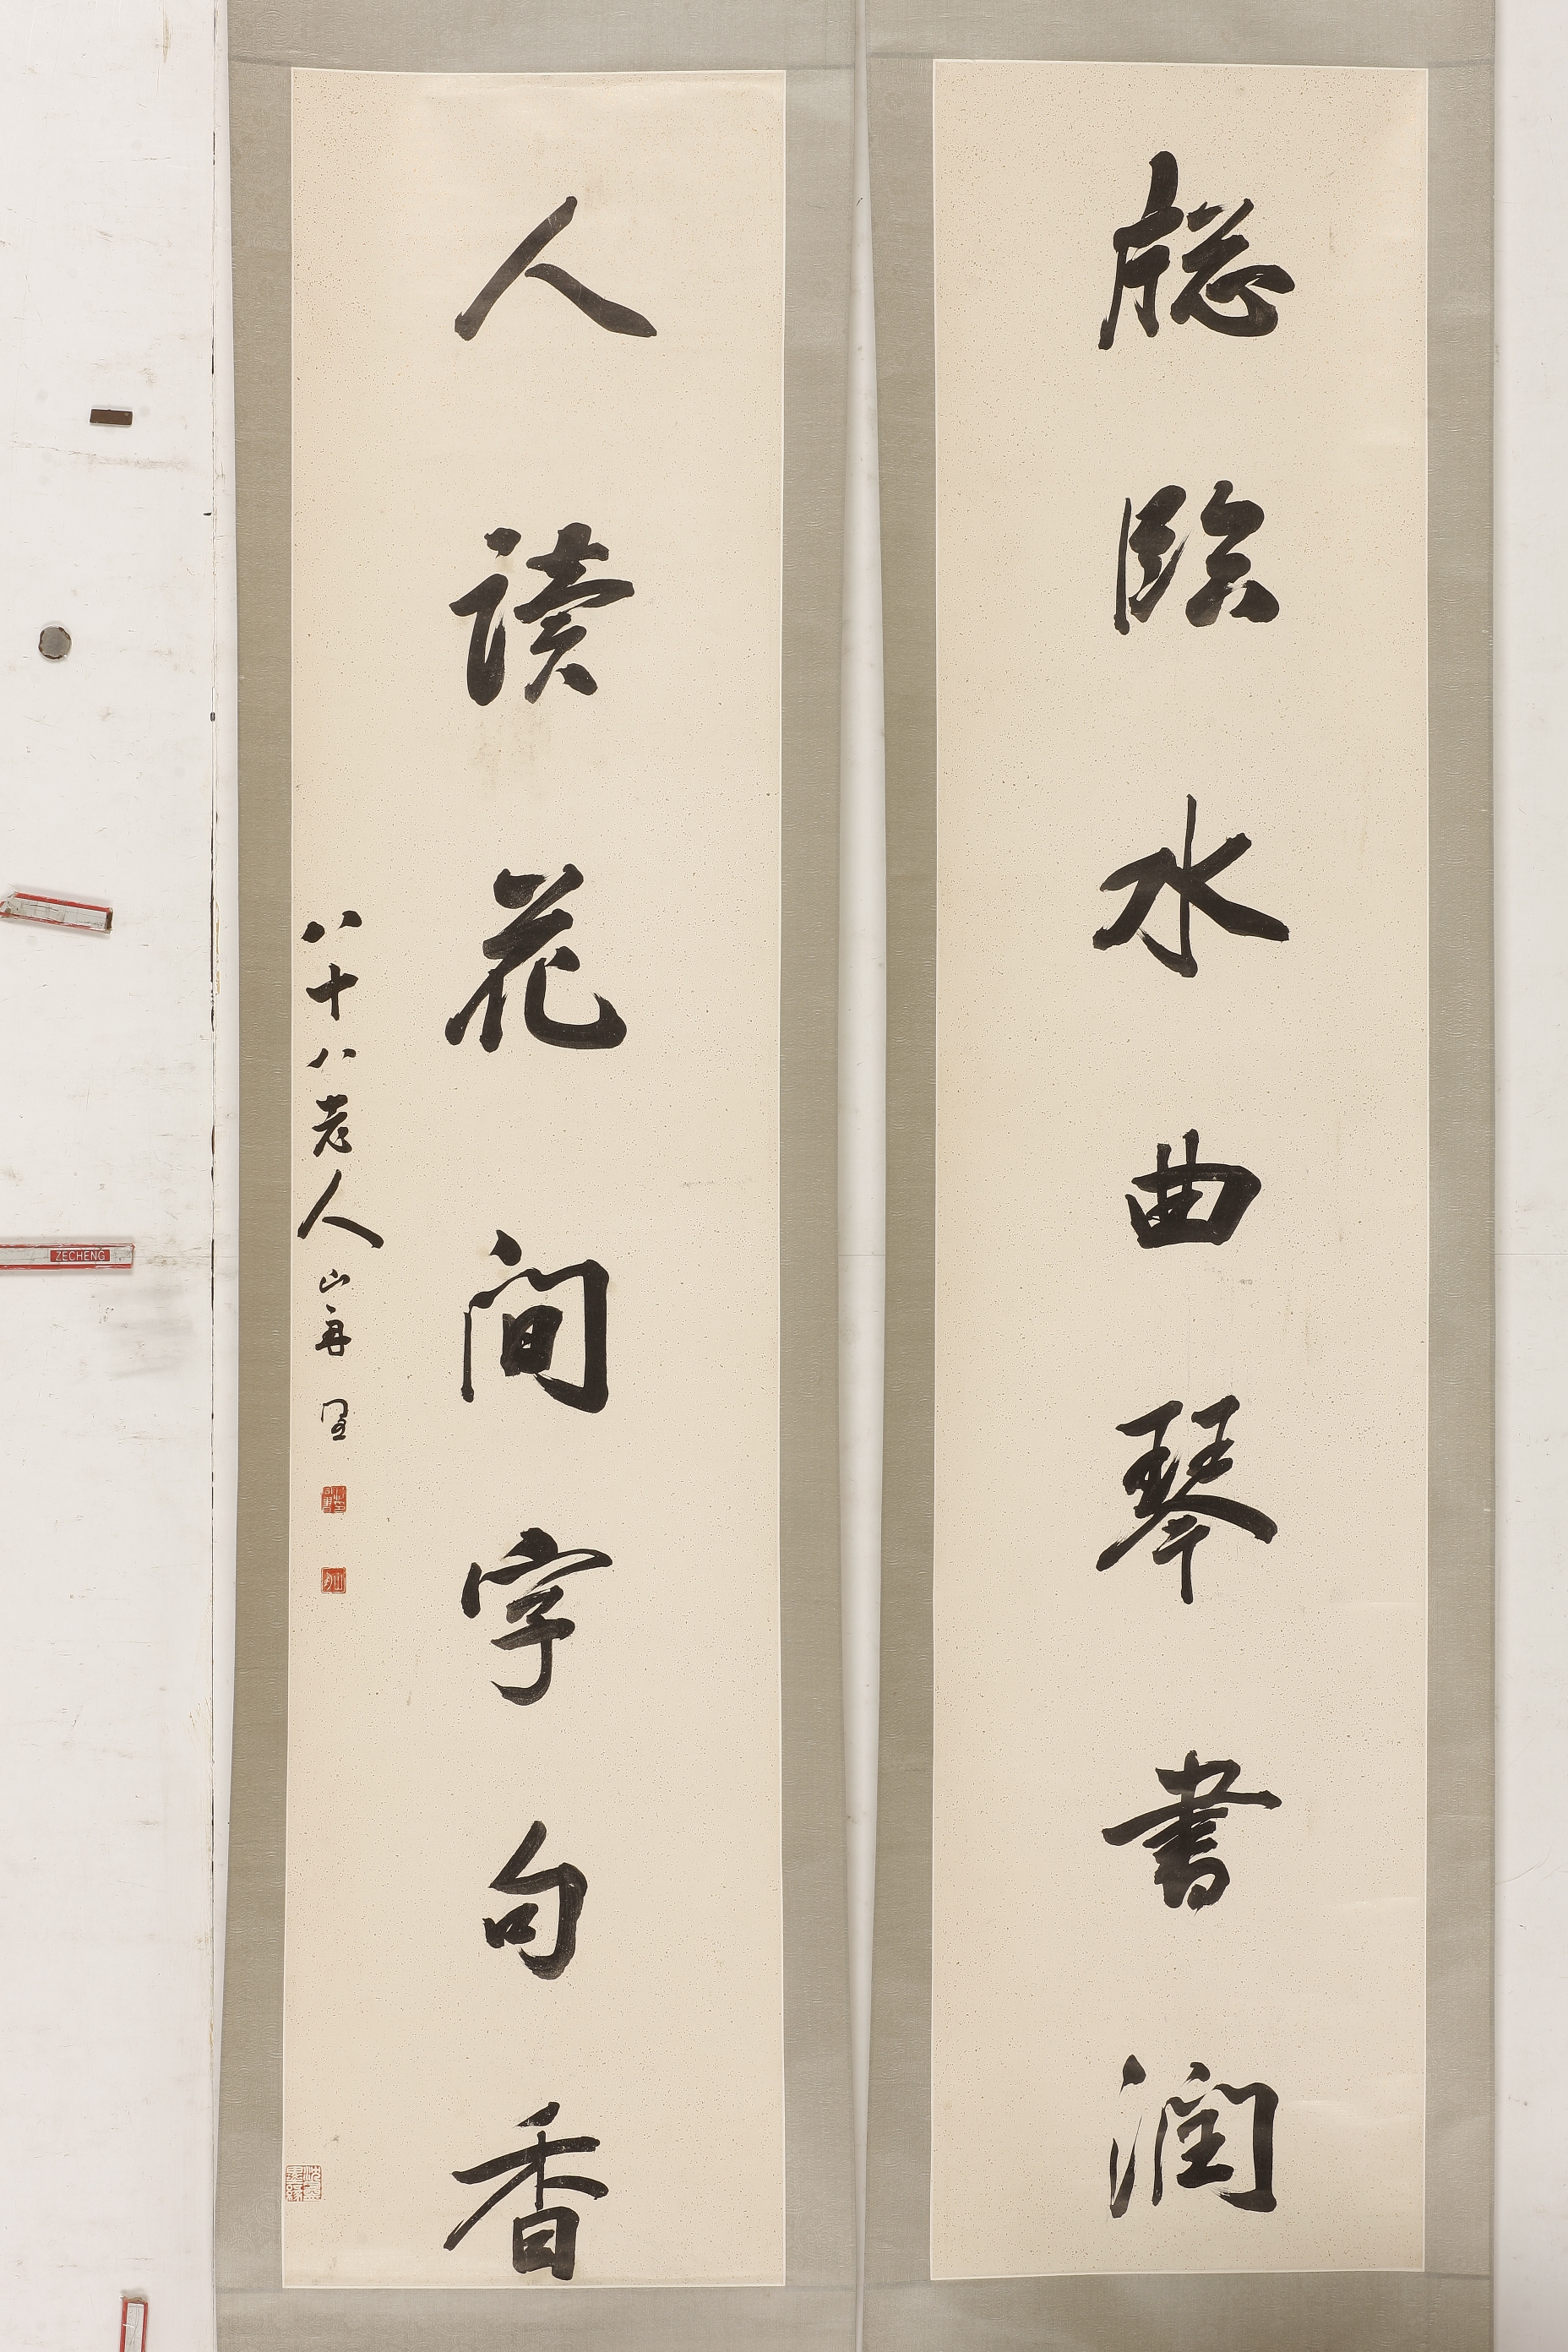 牕臨水曲琴書潤
人讀花間字句香
八十八老人山舟
ZECHENG